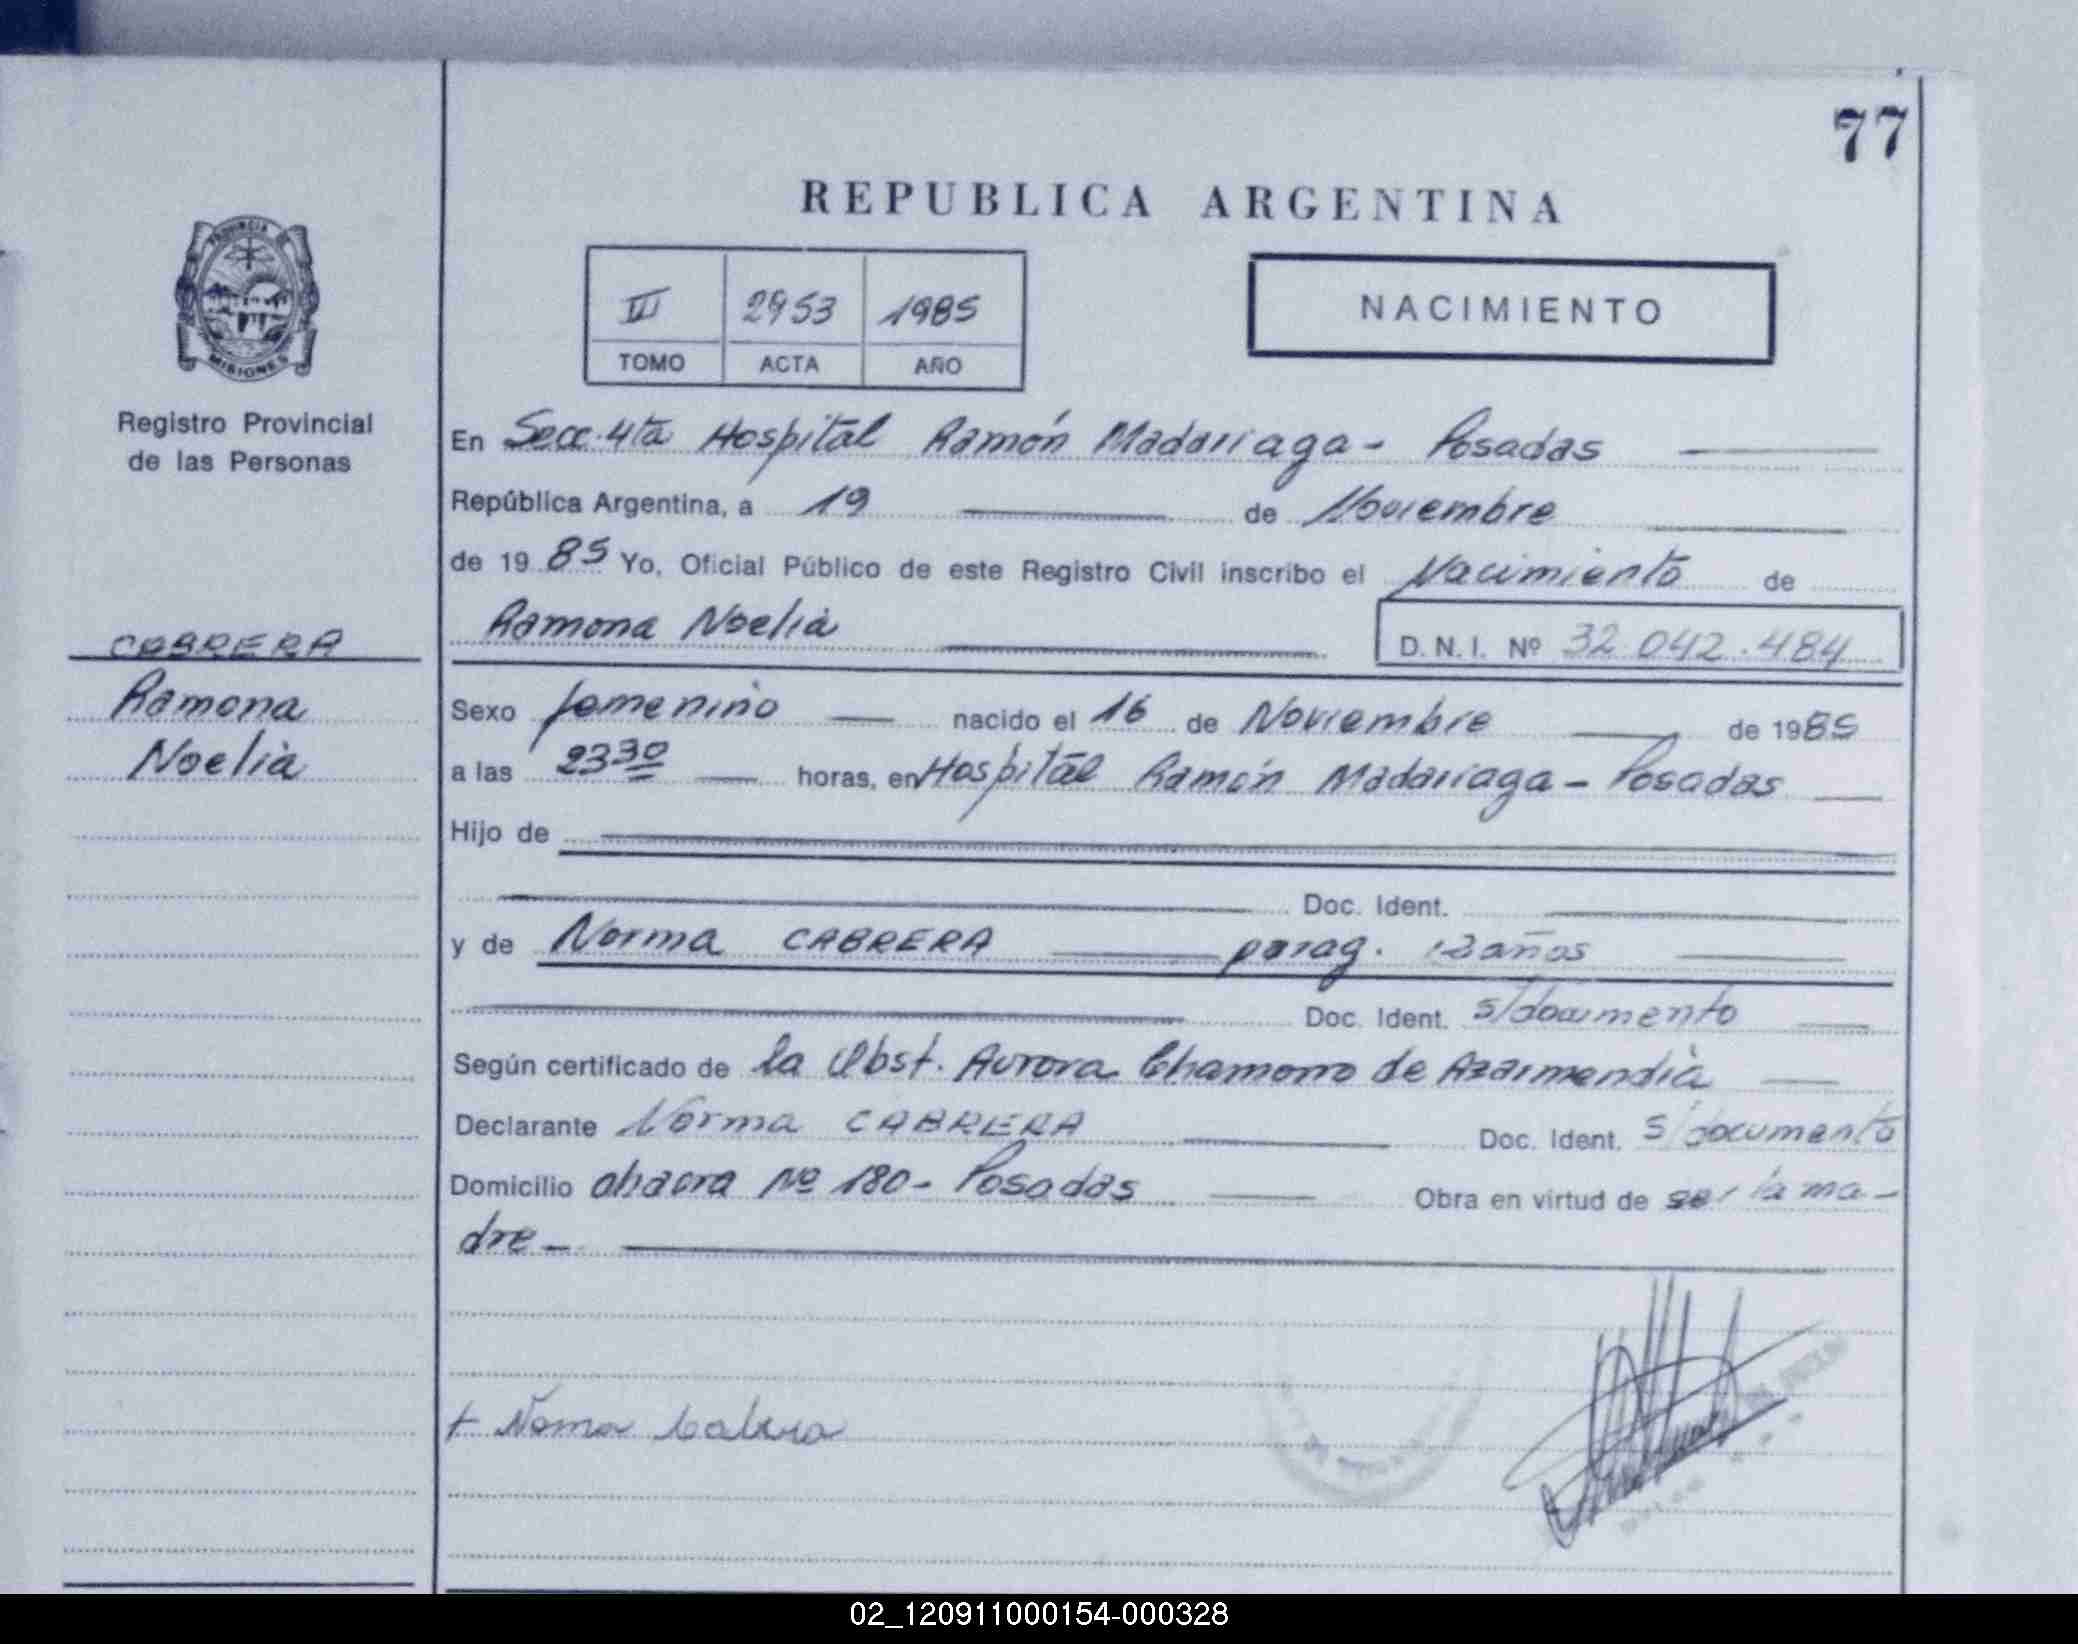 77
REPUBLICA ARGENTINA
PROVINCIA DE
MISIONES
Registro Provincial
de las Personas
III 2953 1985
TOMO ACTA AÑO
NACIMIENTO
En Secc. 4ta Hospital Ramón Madariaga - Posadas
República Argentina, a 19 de Noviembre
de 19 85 Yo, Oficial Público de este Registro Civil inscribo el Nacimiento de
Ramona Noelia D.N.I. Nº 32.042.484
CABRERA
Ramona
Noelia
Sexo femenino nacido el 16 de Noviembre de 1985
a las 23 30 horas, en Hospital Ramón Madariaga - Posadas
Hijo de
Doc. Ident.
y de Norma CABRERA parag. años
Doc. Ident. s/documento
Según certificado de la Obst. Aurora Chamorro de Azarmendia
Declarante Norma CABRERA Doc. Ident. s/documento
Domicilio chacra Nº 180 - Posadas Obra en virtud de ser la ma-
dre -
+ Norma Cabrera
02_120911000154-000328